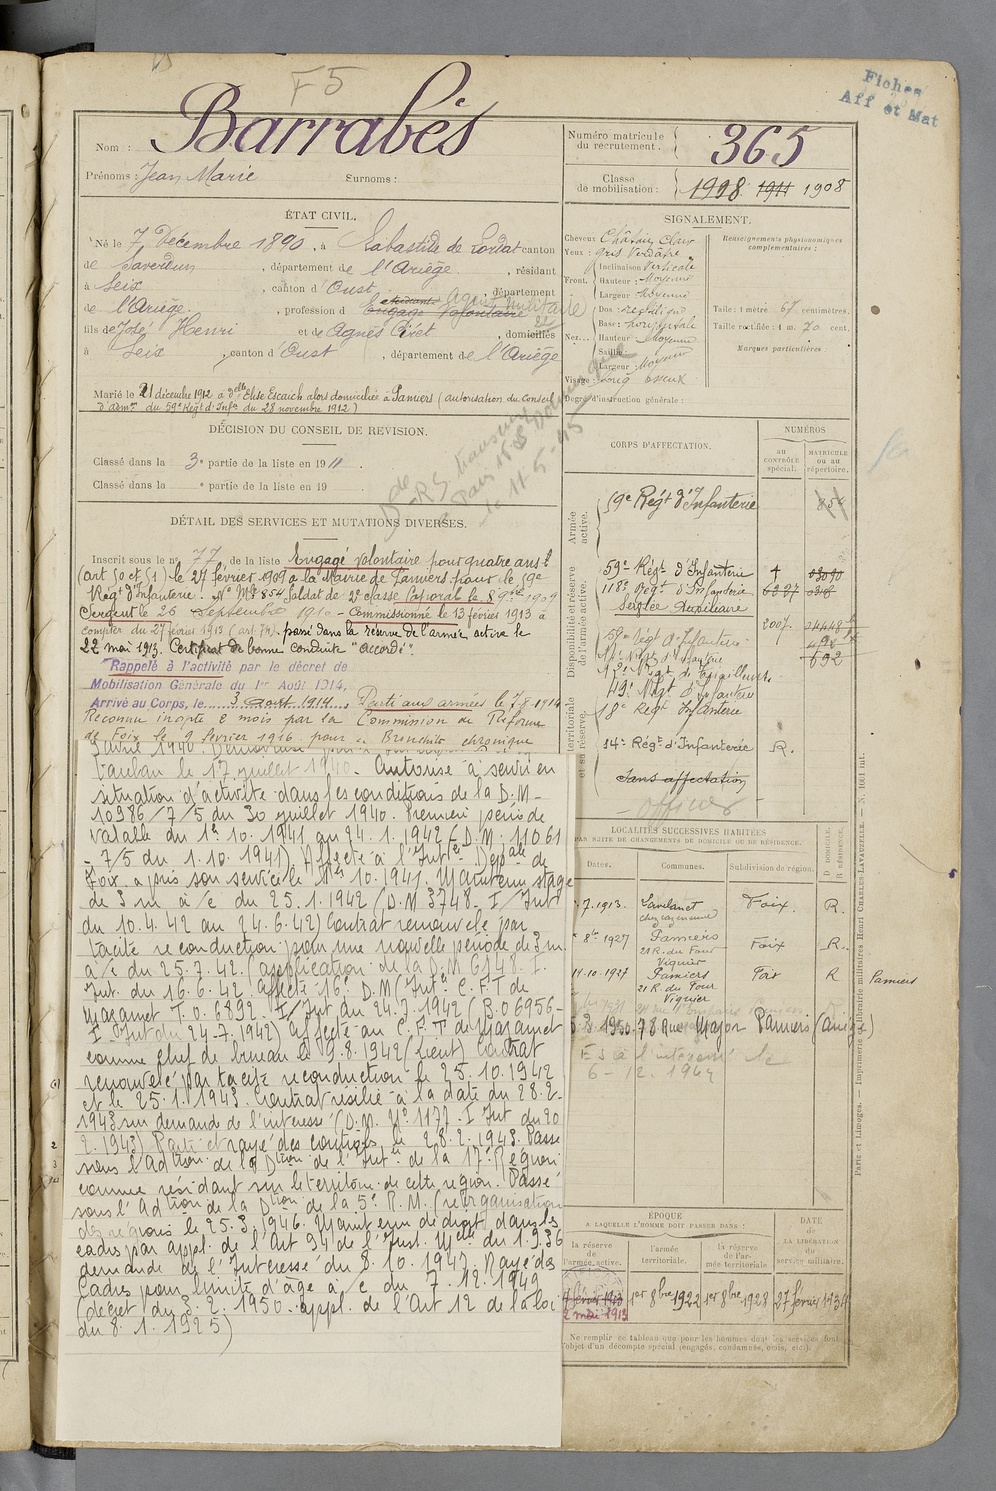 F5
Fiches
Aff et Mat
Nom : Barrabès
Prénoms : Jean Marie Surnoms :
Numéro matricule
du recrutement. 365
Classe
de mobilisation : 1928 1911 1908
ÉTAT CIVIL.
Né le 7 Décembre 1890, à Labastide de Lordat canton
de Saverdun, département de l'Ariège, résidant
à Seix, canton d'Oust, département
de l'Ariège, profession d Engagé Volontaire
étudiant Agent Militaire
fils de José Henri et de Agnès Piret domiciliés
à Seix, canton d'Oust, département de l'Ariège
Marié le 21 décembre 1912 à delle Elise Escaich alors domiciliée à Pamiers (autorisation du Conseil
d'admon du 59e Régt d'Infie du 28 novembre 1912)
SIGNALEMENT.
Cheveux Châtain Clair
Yeux : gris Verdâtre
Front. Inclinaison Verticale
Hauteur : Moyenne
Largeur Moyenne
Nez... Dos : rectiligne
Base : horizontale
Hauteur Moyenne
Saillie
Largeur Moyenne
Visage : long osseux
Degré d'instruction générale :
Renseignements physionomiques
complémentaires :
Taille : 1 mètre 67 centimètres.
Taille rectifiée : 1 m. 70 cent.
Marques particulières
DÉCISION DU CONSEIL DE REVISION.
Classé dans la 3e partie de la liste en 1911.
Classé dans la e partie de la liste en 19 .
DÉTAIL DES SERVICES ET MUTATIONS DIVERSES.
Inscrit sous le no 77 de la liste Engagé Volontaire pour quatre ans
(art 50 et 51) le 27 février 1909 à la Mairie de Pamiers pour le 59e
Régt d'Infanterie. No Mle 854 Soldat de 2e classe Caporal le 8 9bre 1909
Sergent le 26 Septembre 1910 - Commissionné le 13 février 1913 à
compter du 27 février 1913 (art 74). passé dans la réserve de l'armée active le
22 mai 1913. Certificat de bonne conduite "Accordé".
Rappelé à l'activité par le décret de
Mobilisation Générale du 1er Août 1914,
Arrivé au Corps, le 3 août 1914. Parti aux armées le 7.8.1914
Reconnu inapte 2 mois par la Commission de Réforme
de Foix le 9 février 1916 pour : Bronchite chronique
Vauban le 17 juillet 1940. Autorisé à servir en
situation d'activité dans les conditions de la D.M -
10986/7/5 du 30 juillet 1940. Première période
valable du 1er 10. 1941 au 24. 1. 1942 (D.M. 11061
- 7/5 du 1.10. 1941). Affecté à l'Intce Depale de
Foix. a pris son service le 1er 10. 1941. Maintenu stage
de 3 m à/c du 25.1. 1942 (D.M 3748 - I/Int
du 10.4.42 au 24.6.42) Contrat renouvelé par
tacite reconduction pour une nouvelle période de 3 m
à/c du 25.7.42. (application de la D.M. 6148. I.
Int. du 16.6.42. Affecté 16e D.M. Intce C.F.T de
Mazamet T.O. 6892. I/Int du 24.7.1942 (B.O 6956-
I - Int du 24.7.1942) affecté au C.F.T de Mazamet
comme chef de bureau le 9.8.1942 (Lieut) Contrat
renouvelé par tacite reconduction le 25.10.1942
et le 25.1.1943. Contrat résilié à la date du 28.2-
1943 sur demande de l'intéressé (D.M. No 1177. I Int du 20
2. 1943) Parti et rayé des contrôles le 28.2.1943. Passé
sous l'Adtion de la Dtion de l'Intce de la 17e Région
comme résidant sur le territoire de cette région. Passé
sous l'Adtion de la Dtion de la 5e R.M. (réorganisation
des régions le 25.3.1946. Maintenu de droit dans les
cadres par appl. de l'Art 94 de l'Inst. Mlle du 1.9.36
demande de l'Intéressé du 8.10.1947. Rayé des
Cadres pour limite d'âge à/c du 7.12.1949
(décret du 3.2.1950. appl. de l'Art 12 de la loi
du 8.1.1925)
CORPS D'AFFECTATION.
NUMÉROS
AU
CONTRÔLE
spécial.
MATRICULE
OU AU
répertoire.
Armée
active.
59e Régt d'Infanterie 854
Disponibilité et réserve
de l'armée active.
59e Régt d'Infanterie
118e Régt d'Infanterie 6297
Service Auxiliaire
59e Régt d'Infanterie 2007
692
49e Régt d'Infanterie
18e Régt Infanterie
territoriale
et sa réserve.
14e Régt d'Infanterie R.
Sans affectation
officier
LOCALITÉS SUCCESSIVES HABITÉES
PAR SUITE DE CHANGEMENTS DE DOMICILE OU DE RÉSIDENCE.
Dates. Communes. Subdivision de région. D. DOMICILE. R. RÉSIDENCE.
7.1913. Lavelanet Foix. R.
8bre 1927 Pamiers Foix R.
21 R. du Four
Viguier
11.10.1927 Pamiers Foix R Pamiers
21 R. du Four
Viguier
3.1950. 78 quer Major Pamiers (Ariège)
FS à l'intéressé le
6-12.1964
ÉPOQUE
A LAQUELLE L'HOMME DOIT PASSER DANS :
la réserve
de
l'armée active.
l'armée
territoriale.
la réserve
de l'ar-
mée territoriale
DATE
de
LA LIBÉRATION
du
service militaire.
27 février 1913
22 mai 1913
1er 8bre 1922
1er 8bre 1928
27 février 1934
Ne remplir ce tableau que pour les hommes dont les services font
l'objet d'un décompte spécial (engagés, condamnés, omis, etc.).
Paris et Limoges. — Imprimerie et librairie militaires Henri CHARLES-LAVAUZELLE. — N. 1001 int.